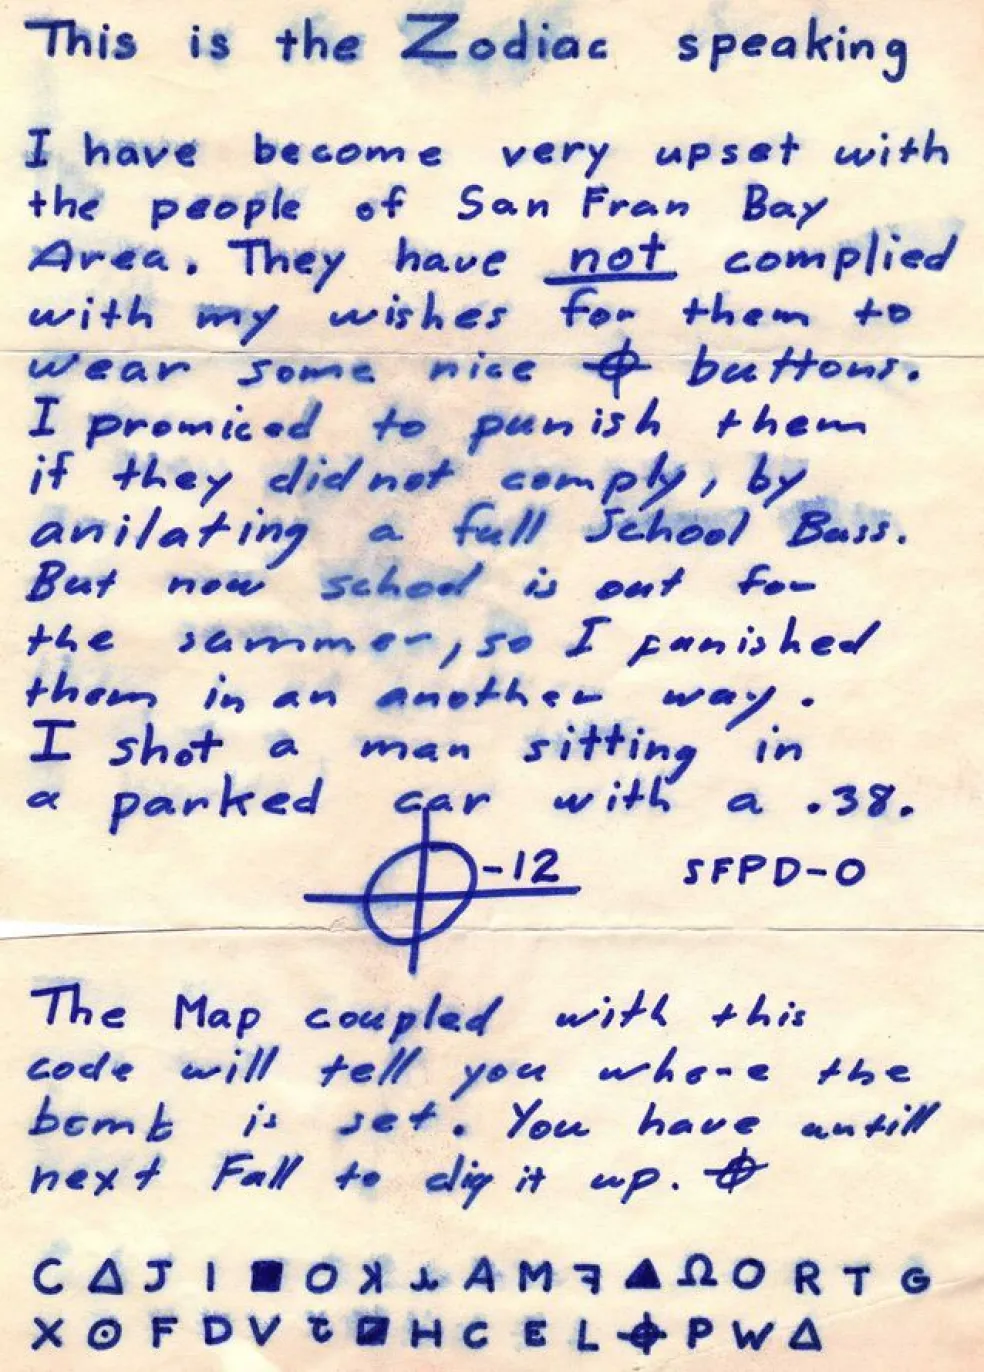 This is the Zodiac speaking
I have become very upset with
the people of San Fran Bay
Area. They have not complied
with my wishes for them to
wear some nice ⌖ buttons.
I promiced to punish them
if they did not comply, by
anilating a full School Buss.
But now school is out for
the summer, so I punished
them in an another way.
I shot a man sitting in
a parked car with a .38.
⌖-12 SFPD-0
The Map coupled with this
code will tell you where the
bomb is set. You have untill
next Fall to dig it up. ⌖
C Δ J I ■ O ꓘ ⅄ A M ꟻ ▲ Ω O R T G
X ⊙ F D V ⱦ ◪ H C E L ⌖ P W Δ